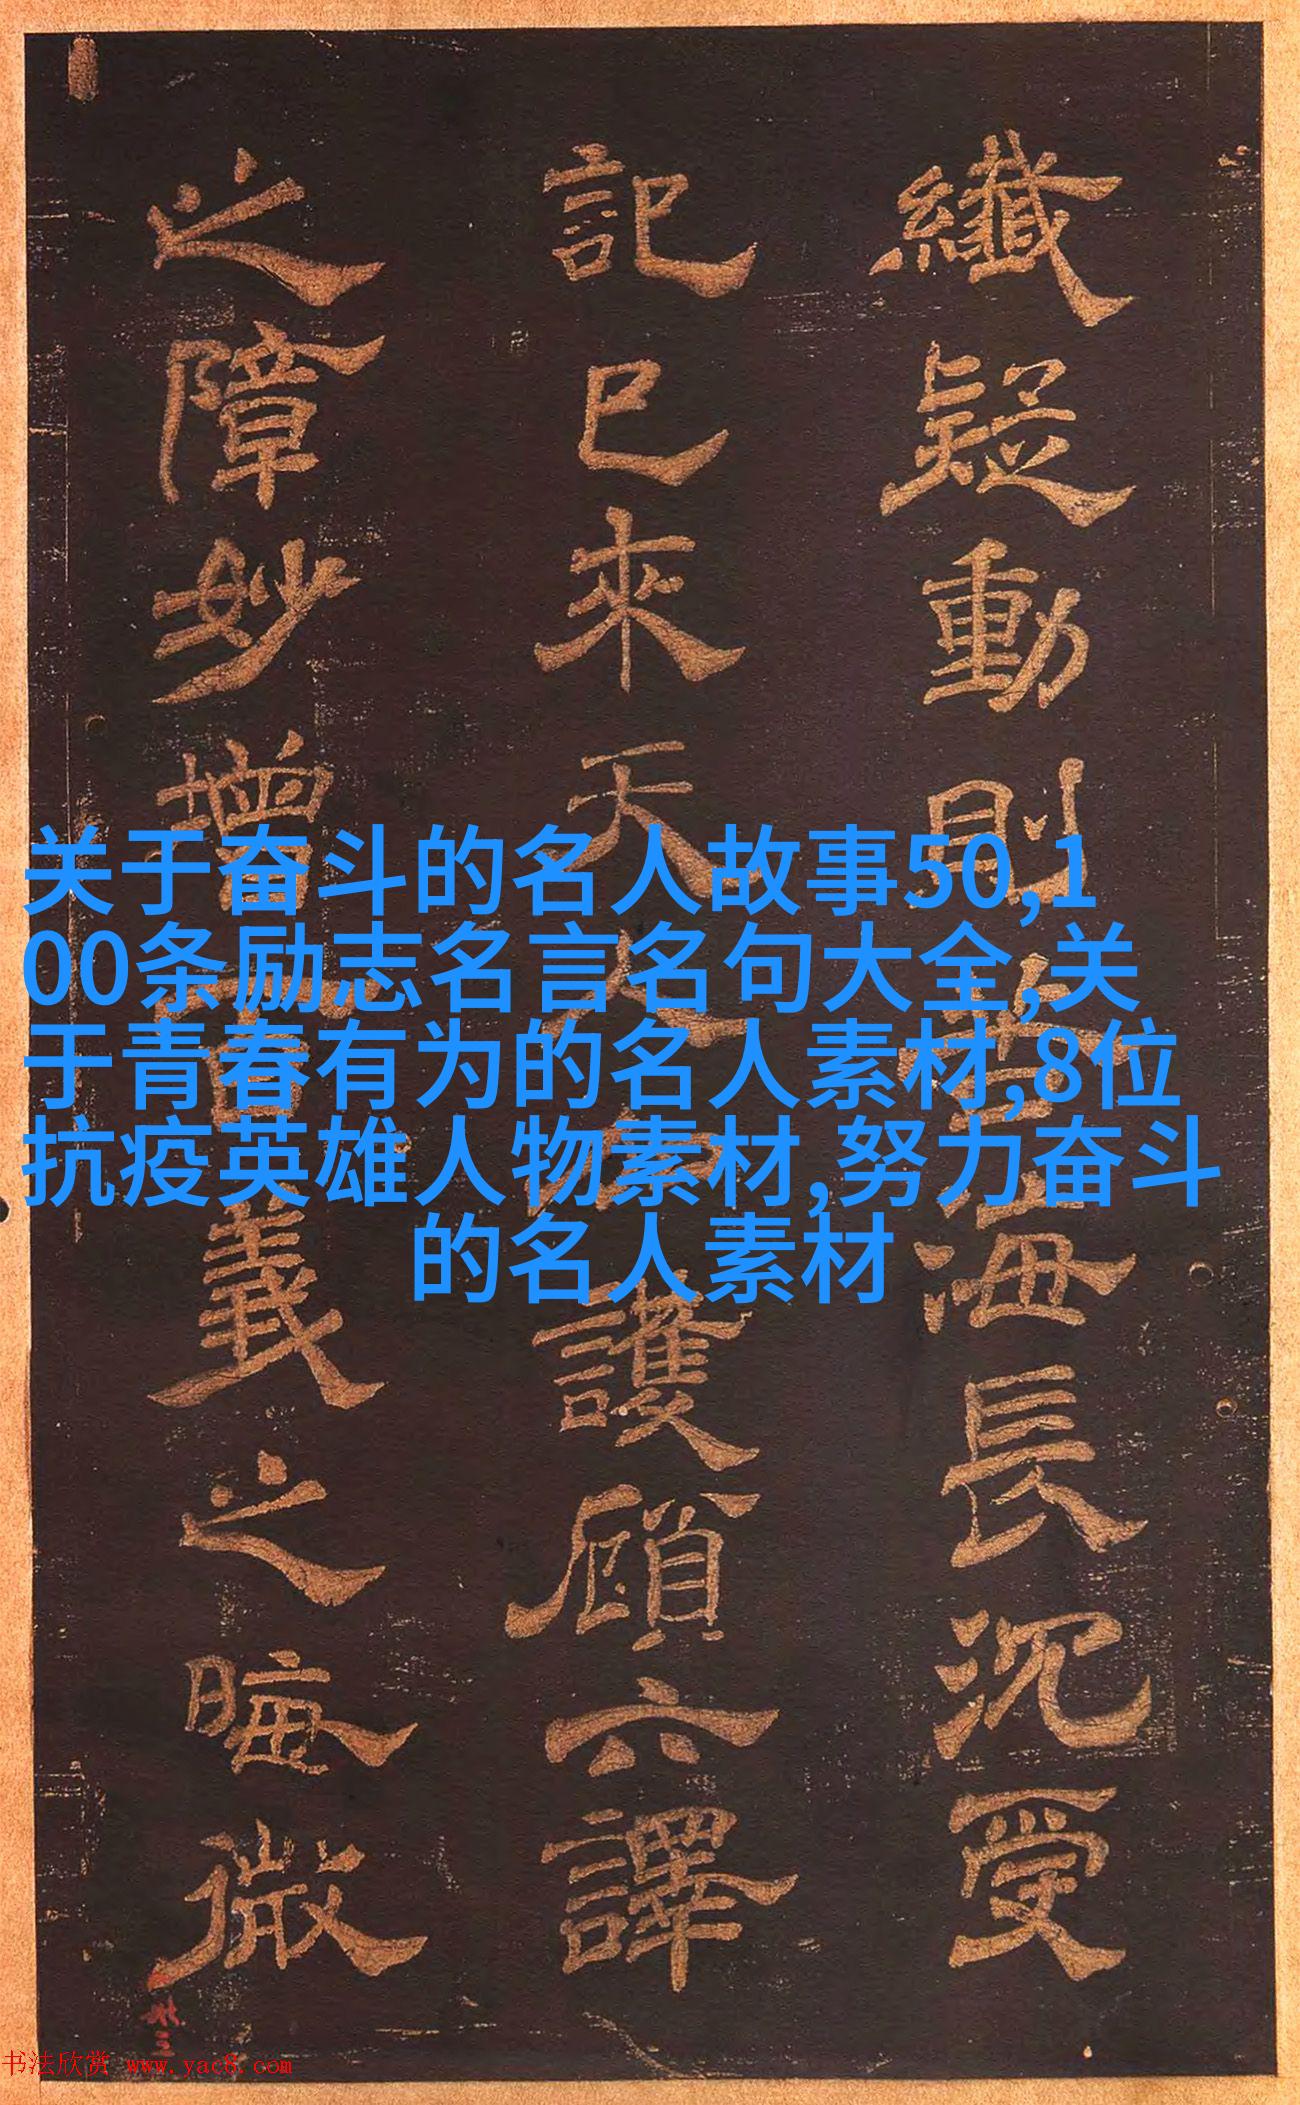 纖疑動則海長沉受
記已來天護顧六譯
之障妙增義之晦微
关于奋斗的名人故事50,1
00条励志名言名句大全,关
于青春有为的名人素材,8位
抗疫英雄人物素材,努力奋斗
的名人素材
书法欣赏 www.yac8.com